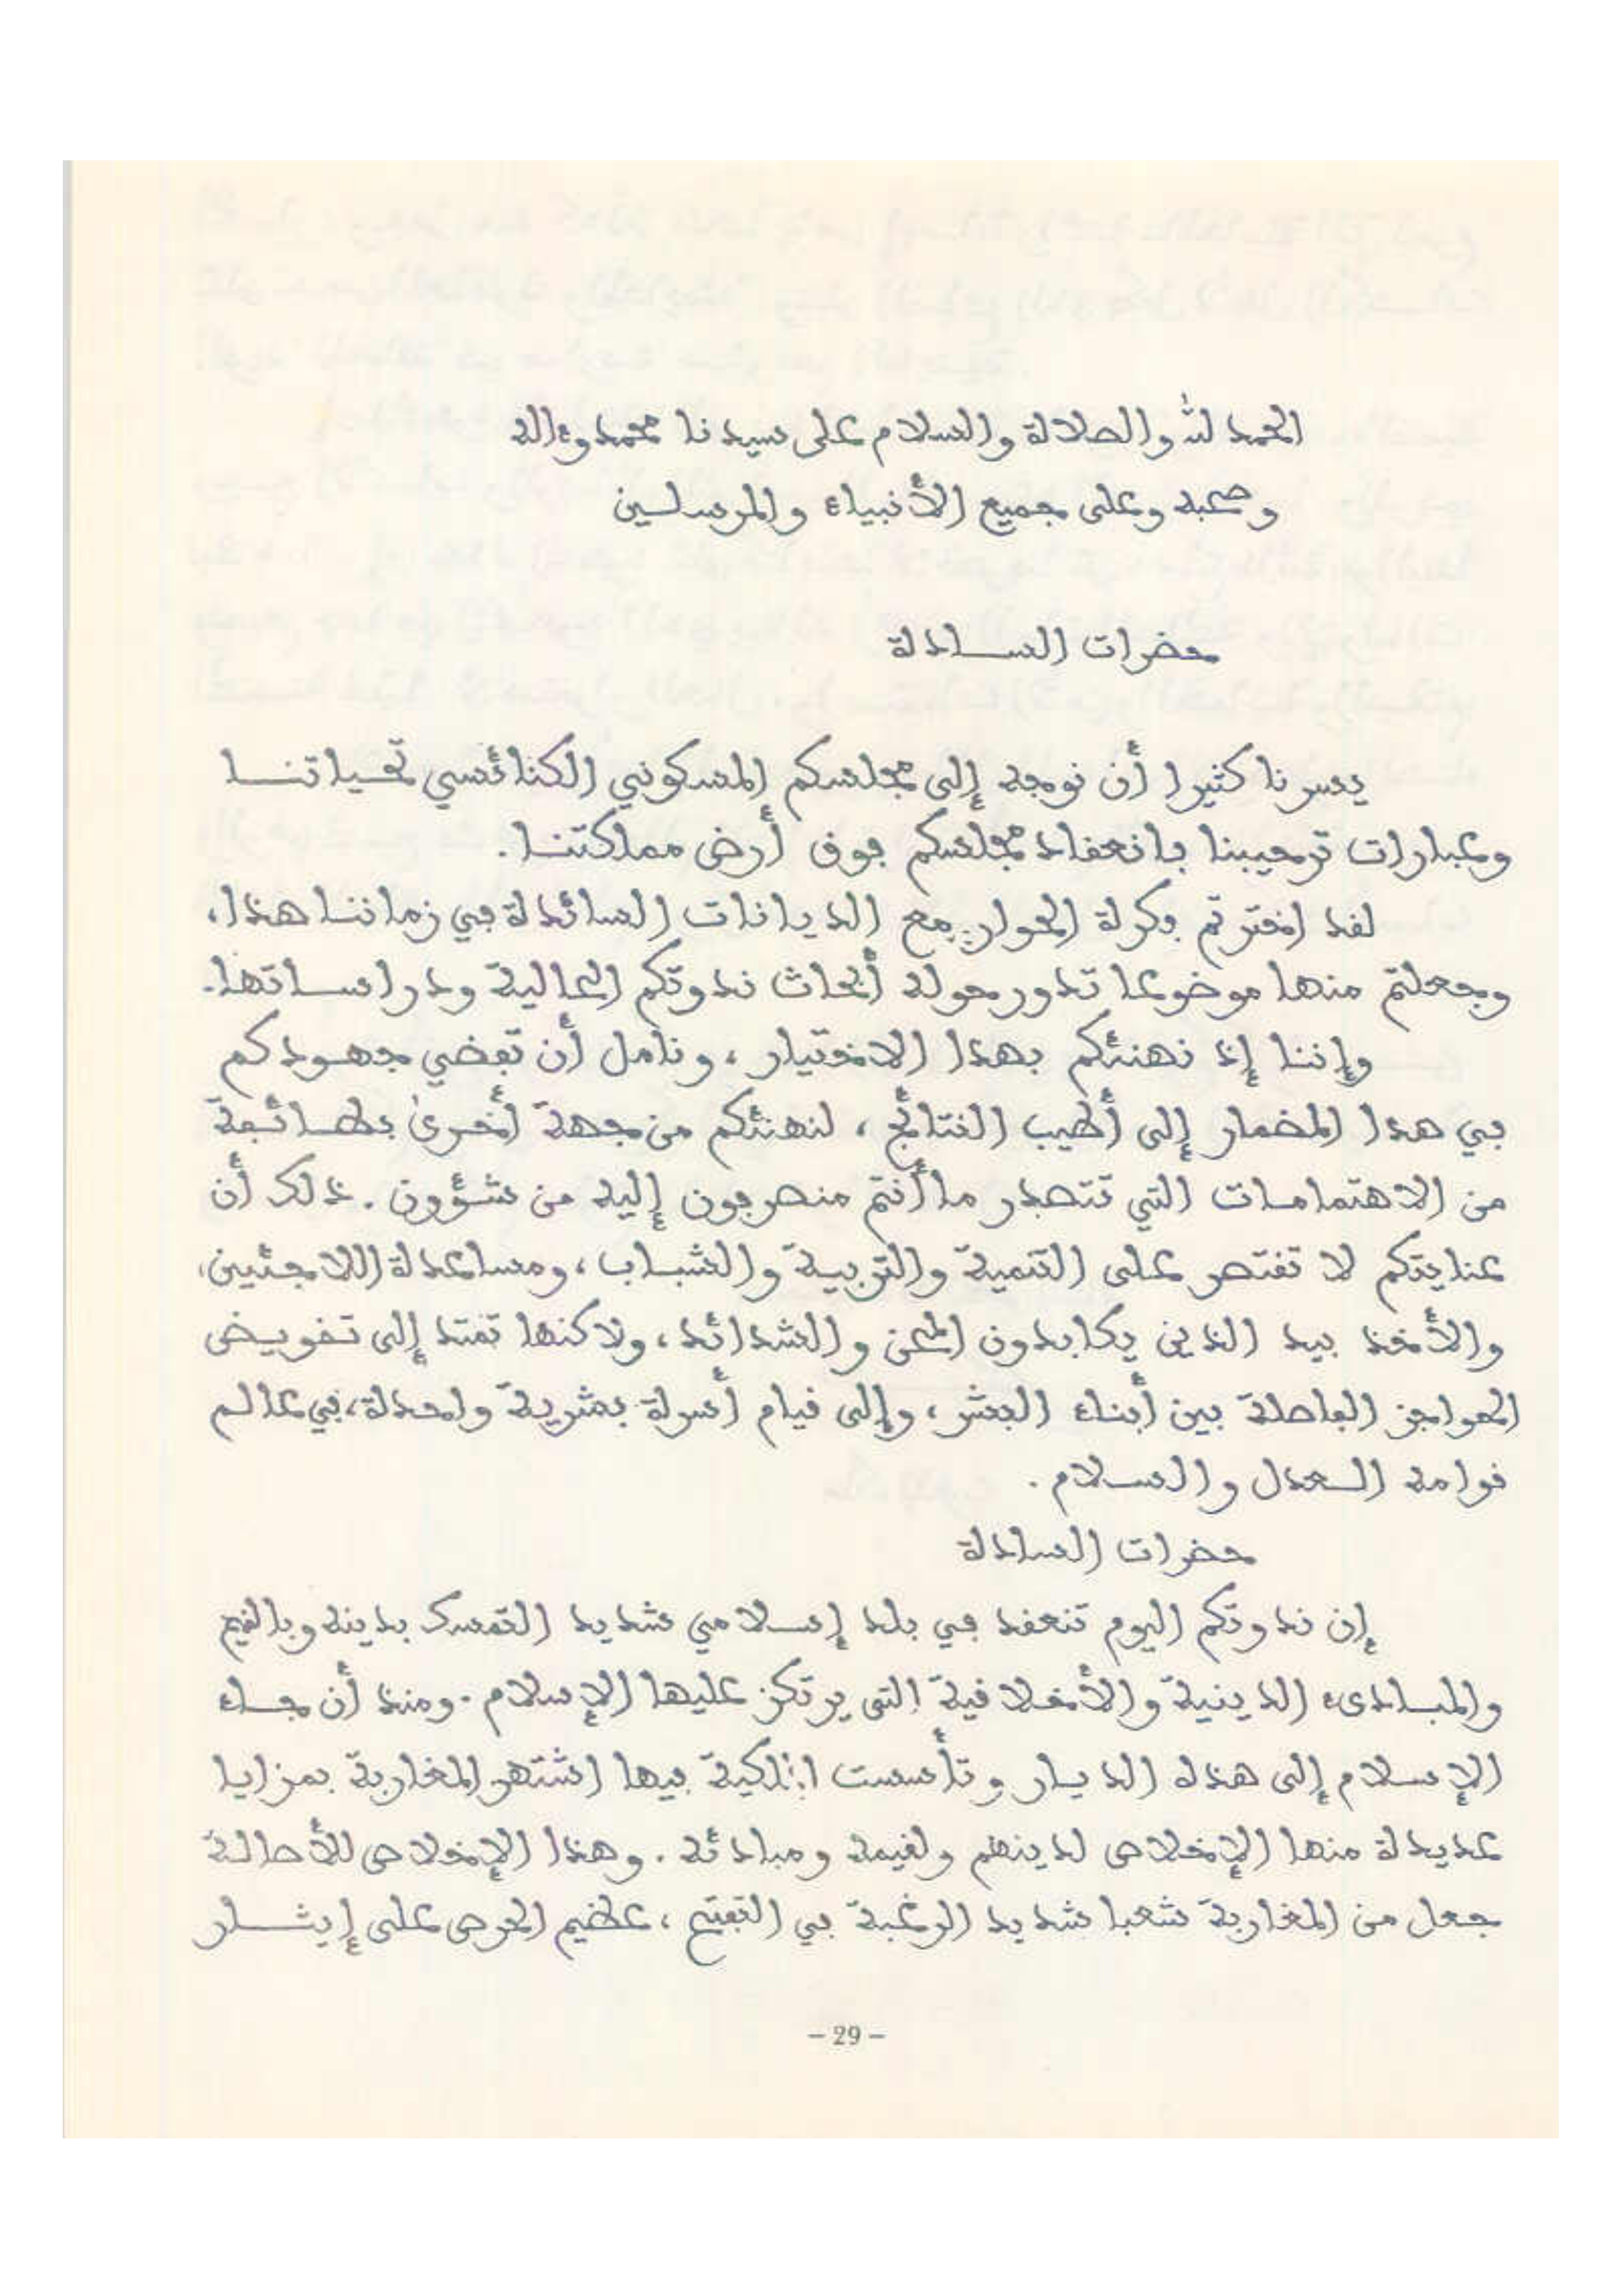 الحمد لله والصلاة والسلام على سيدنا محمد وءاله
وصحبه وعلى جميع الأنبياء والمرسلين
حضرات السادة
يسرنا كثيرا أن نوجه إلى مجلسكم المسكوني الكنائسي تحياتنا
وعبارات ترحيبنا بانعقاد مجلسكم فوق أرض مملكتنا.
لقد اخترتم فكرة الحوار مع الديانات السائدة في زماننا هذا،
وجعلتم منها موضوعا تدور حوله أبحاث ندوتكم العالية ودراساتها.
وإننا إذ نهنئكم بهذا الاختيار، ونامل أن تفضي جهودكم
في هذا المضمار إلى أطيب النتائج، لنهنئكم من جهة أخرى بطائفة
من الاهتمامات التي تتصدر ما أنتم منصرفون إليه من شؤون. ذلك أن
عنايتكم لا تقتصر على التنمية والتربية والشباب، ومساعدة اللاجئين،
والأخذ بيد الذين يكابدون المحن والشدائد، ولاكنها تمتد إلى تقويض
الحواجز الفاصلة بين أبناء البشر، وإلى قيام أسرة بشرية واحدة، في عالم
قوامه العدل والسلام.
حضرات السادة
إن ندوتكم اليوم تنعقد في بلد إسلامي شديد التمسك بدينه وبالقيم
والمبادىء الدينية والأخلاقية التى يرتكز عليها الإسلام. ومنذ أن جاء
الإسلام إلى هذه الديار وتأسست الملكية فيها اشتهر المغاربة بمزايا
عديدة منها الإخلاص لدينهم ولقيمه ومبادئه. وهذا الإخلاص للأصالة
جعل من المغاربة شعبا شديد الرغبة في التفتح، عظيم الحرص على إيثار
- 29 -